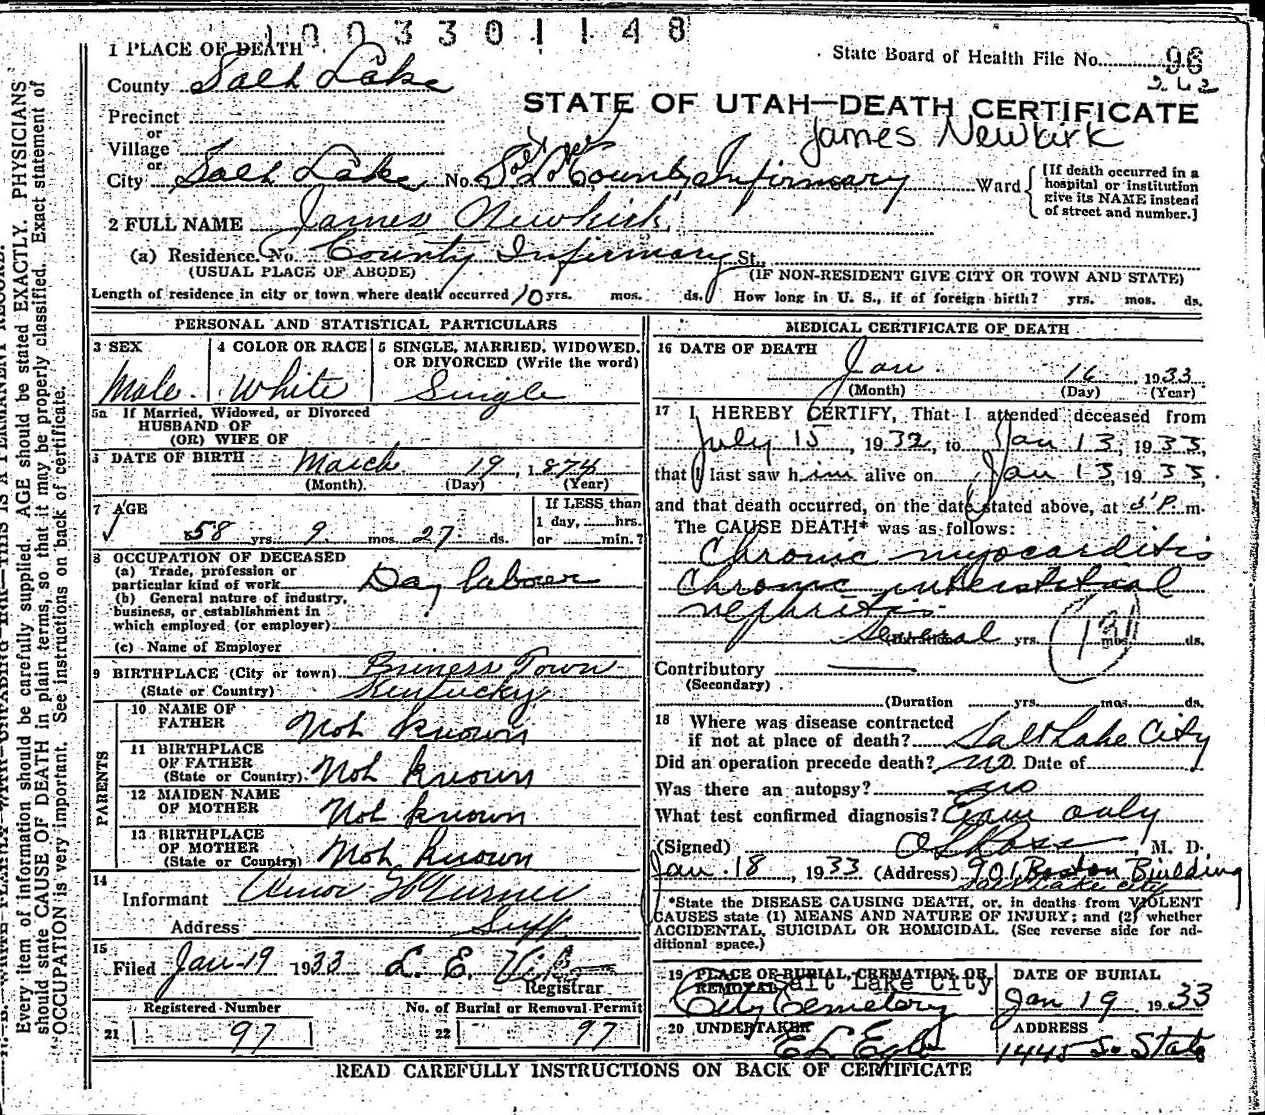 1003301148
1 PLACE OF DEATH
State Board of Health File No. 96
262
County Salt Lake
STATE OF UTAH—DEATH CERTIFICATE
Precinct
or
James Newkirk
Village
or
City Salt Lake No. S. L. County Infirmary Ward
[If death occurred in a hospital or institution give its NAME instead of street and number.]
2 FULL NAME James Newkirk
(a) Residence. No. County Infirmary St.,
(USUAL PLACE OF ABODE) (IF NON-RESIDENT GIVE CITY OR TOWN AND STATE)
Length of residence in city or town where death occurred 10 yrs. mos. ds. How long in U. S., if of foreign birth? yrs. mos. ds.
PERSONAL AND STATISTICAL PARTICULARS
3 SEX
Male
4 COLOR OR RACE
White
5 SINGLE, MARRIED, WIDOWED, OR DIVORCED (Write the word)
Single
5a If Married, Widowed, or Divorced
HUSBAND OF
(OR) WIFE OF
DATE OF BIRTH March 19, 1874
(Month) (Day) (Year)
7 AGE
58 yrs. 9 mos. 27 ds.
If LESS than
1 day, hrs.
or min.?
8 OCCUPATION OF DECEASED
(a) Trade, profession or
particular kind of work Day laborer
(b) General nature of industry,
business, or establishment in
which employed (or employer)
(c) Name of Employer
9 BIRTHPLACE (City or town) Town
(State or Country) Kentucky
PARENTS
10 NAME OF
FATHER Not known
11 BIRTHPLACE
OF FATHER
(State or Country) Not known
12 MAIDEN NAME
OF MOTHER Not known
13 BIRTHPLACE
OF MOTHER
(State or Country) Not known
14
Informant
Address Supt
15
Filed Jan-19 1933 L. E.
Registrar
Registered Number No. of Burial or Removal Permit
21 97 22 97
MEDICAL CERTIFICATE OF DEATH
16 DATE OF DEATH
Jan. 16 1933
(Month) (Day) (Year)
17 I HEREBY CERTIFY, That I attended deceased from
July 15, 1932, to Jan 13, 1933,
that I last saw him alive on Jan 13, 1933,
and that death occurred, on the date stated above, at 5 P. m.
The CAUSE DEATH* was as follows:
Chronic myocarditis
Chronic interstitial
nephritis
several yrs. mos. ds.
131
Contributory
(Secondary)
(Duration yrs. mos. ds.
18 Where was disease contracted
if not at place of death? Salt Lake City
Did an operation precede death? no Date of
Was there an autopsy? no
What test confirmed diagnosis? Exam only
(Signed) Ross, M. D.
Jan. 18, 1933 (Address) 901 Boston Building
Salt Lake City
*State the DISEASE CAUSING DEATH, or, in deaths from VIOLENT
CAUSES state (1) MEANS AND NATURE OF INJURY; and (2) whether
ACCIDENTAL, SUICIDAL OR HOMICIDAL. (See reverse side for ad-
ditional space.)
19 PLACE OF BURIAL, CREMATION, OR
REMOVAL Salt Lake City
City Cemetery
DATE OF BURIAL
Jan 19 1933
20 UNDERTAKER
ADDRESS
1445 So. State
READ CAREFULLY INSTRUCTIONS ON BACK OF CERTIFICATE
Every item of information should be carefully supplied. AGE should be stated EXACTLY. PHYSICIANS
should state CAUSE OF DEATH in plain terms, so that it may be properly classified. Exact statement of
OCCUPATION is very important. See instructions on back of certificate.